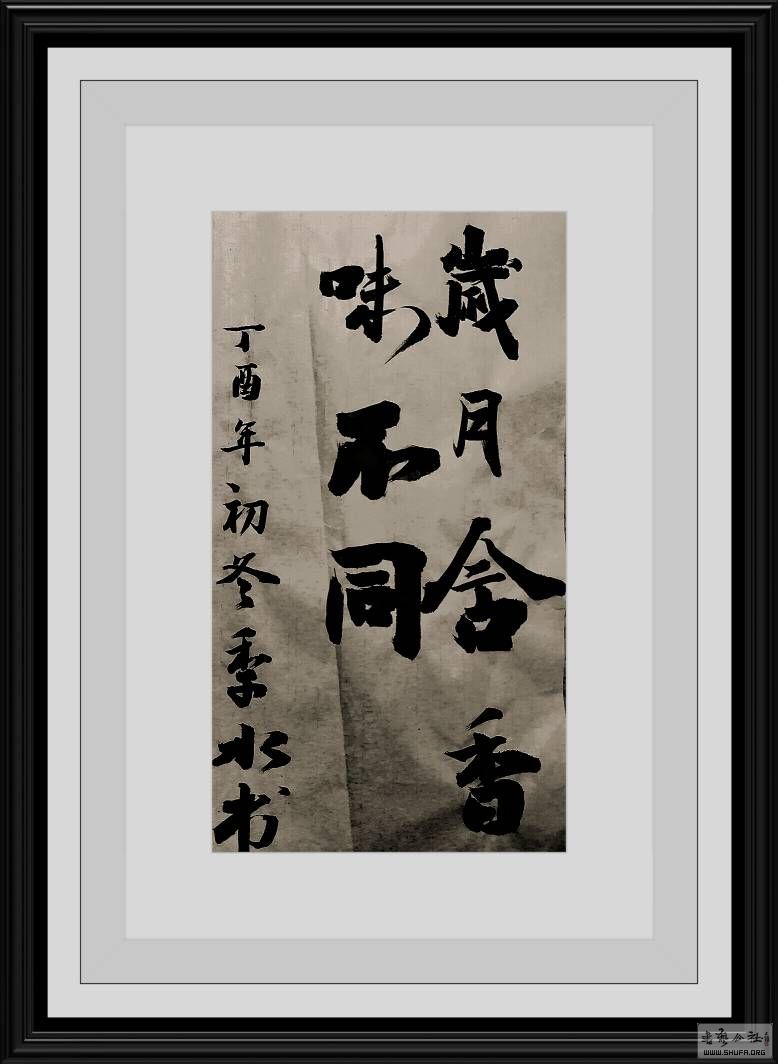 歲月含香
味不同
丁酉年初冬季水书
WWW.SHUFA.ORG